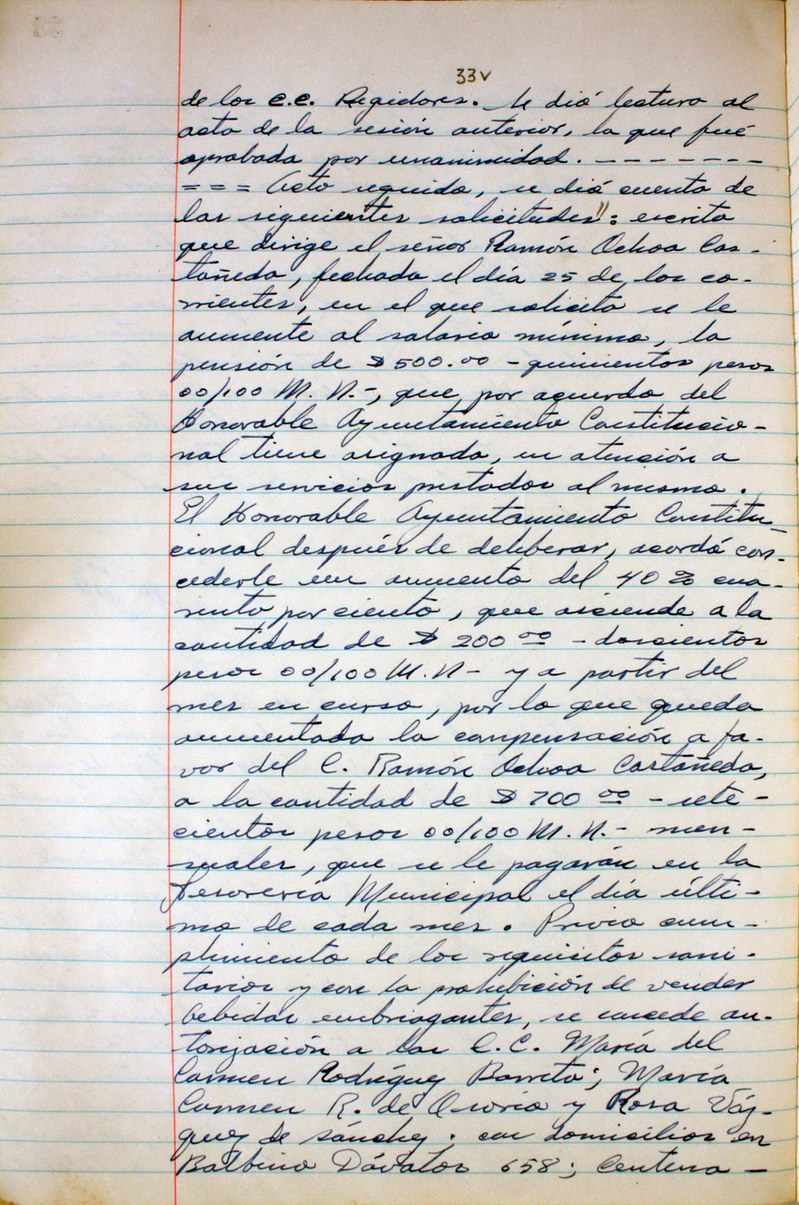 33v
de los C.C. Regidores. Se dió lectura al
acta de la sesión anterior, la que fué
aprobada por unanimidad. - - - - - - -
= = = Acto seguido, se dió cuenta de
las siguientes solicitudes": escrito
que dirige el señor Ramón Ochoa Cas-
tañeda, fechada el día 25 de los co-
rrientes, en el que solicita se le
aumente al salario mínimo, la
pensión de $500.00 - quinientos pesos
00/100 M. N.-, que por acuerdo del
Honorable Ayuntamiento Constitucio-
nal tiene asignada, en atención a
sus servicios prestados al mismo.
El Honorable Ayuntamiento Constitu-
cional después de deliberar, acordó con-
cederle un aumento del 40% cua-
renta por ciento, que asciende a la
cantidad de $ 200 00 - doscientos
pesos 00/100 M.N- y a partir del
mes en curso, por lo que queda
aumentada la compensación a fa-
vor del C. Ramón Ochoa Castañeda,
a la cantidad de $ 700 00 - sete-
cientos pesos 00/100 M. N.- men-
suales, que se le pagarán en la
Tesorería Municipal el día últi-
mo de cada mes. Previo cum-
plimiento de los requisitos sani-
tarios y con la prohibición de vender
bebidas embriagantes, se concede au-
torización a las C.C. María del
Carmen Rodríguez Barreto; María
Carmen R. de Osorio y Rosa Váz-
quez de Sánchez; con domicilios en
Balbino Dávalos 658; Centena-